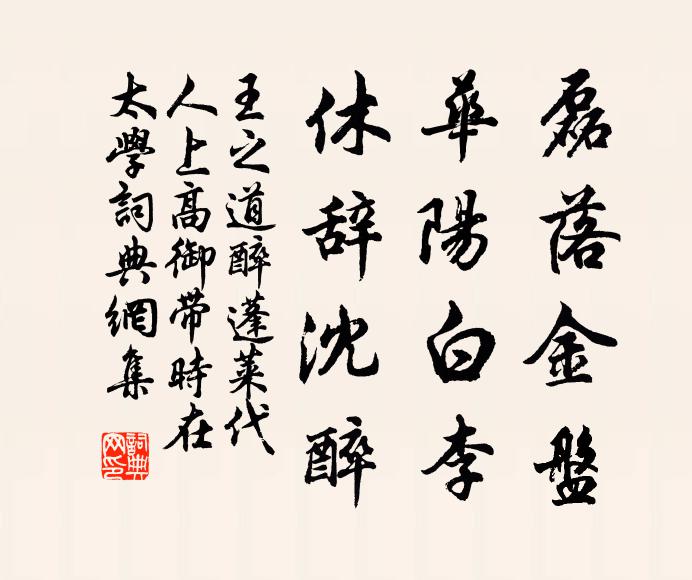 磊落金盤
華陽白李
休辞沈醉
王之道醉蓬萊代
人上高御帶時在
太學詞典網集
詞典網印